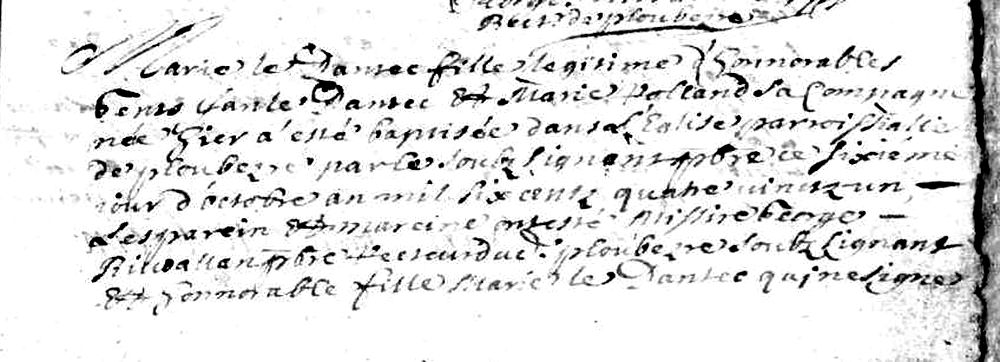 Rect de ploubezre
Marie le Dantec fille legitime d'honnorables
gents le Dantec et Marie Rolland sa Compagne
née hier a esté baptisée dans l'Eglise parroissialle
de ploubezre par le soubz signant pbre ce sixieme
jour d'octobre an mil six centz quatre vinctz un
Les parein et mareine ont esté Missire George
Rivoallan pbre Recteur dud. ploubezre soubz signant
et honnorable fille Marie le Dantec qui ne signe